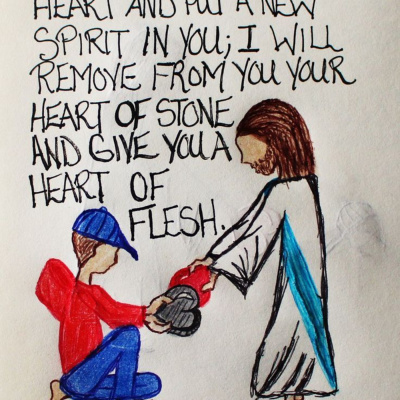 HEART AND PUT A NEW
SPIRIT IN YOU; I WILL
REMOVE FROM YOU YOUR
HEART OF STONE
AND GIVE YOU A
HEART OF
FLESH.